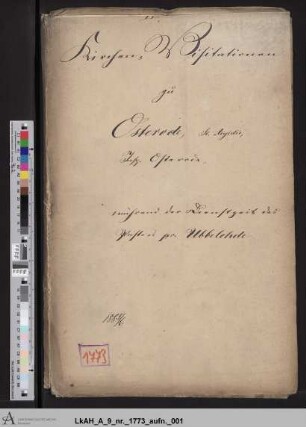 Kirchen-Visitationen
zu
Osterode, St. Aegidii,
Insp. Osterode.
während der Dienstzeit des
Pastors pr.
1773
LkAH_A_9_nr._1773_aufn._001